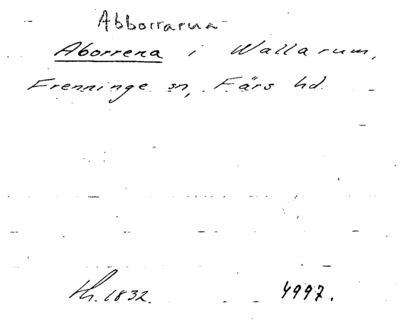 Abborrarna
Aborrena i Wallarum,
Frenninge sn, Färs hd.
th. 1832. 4997.